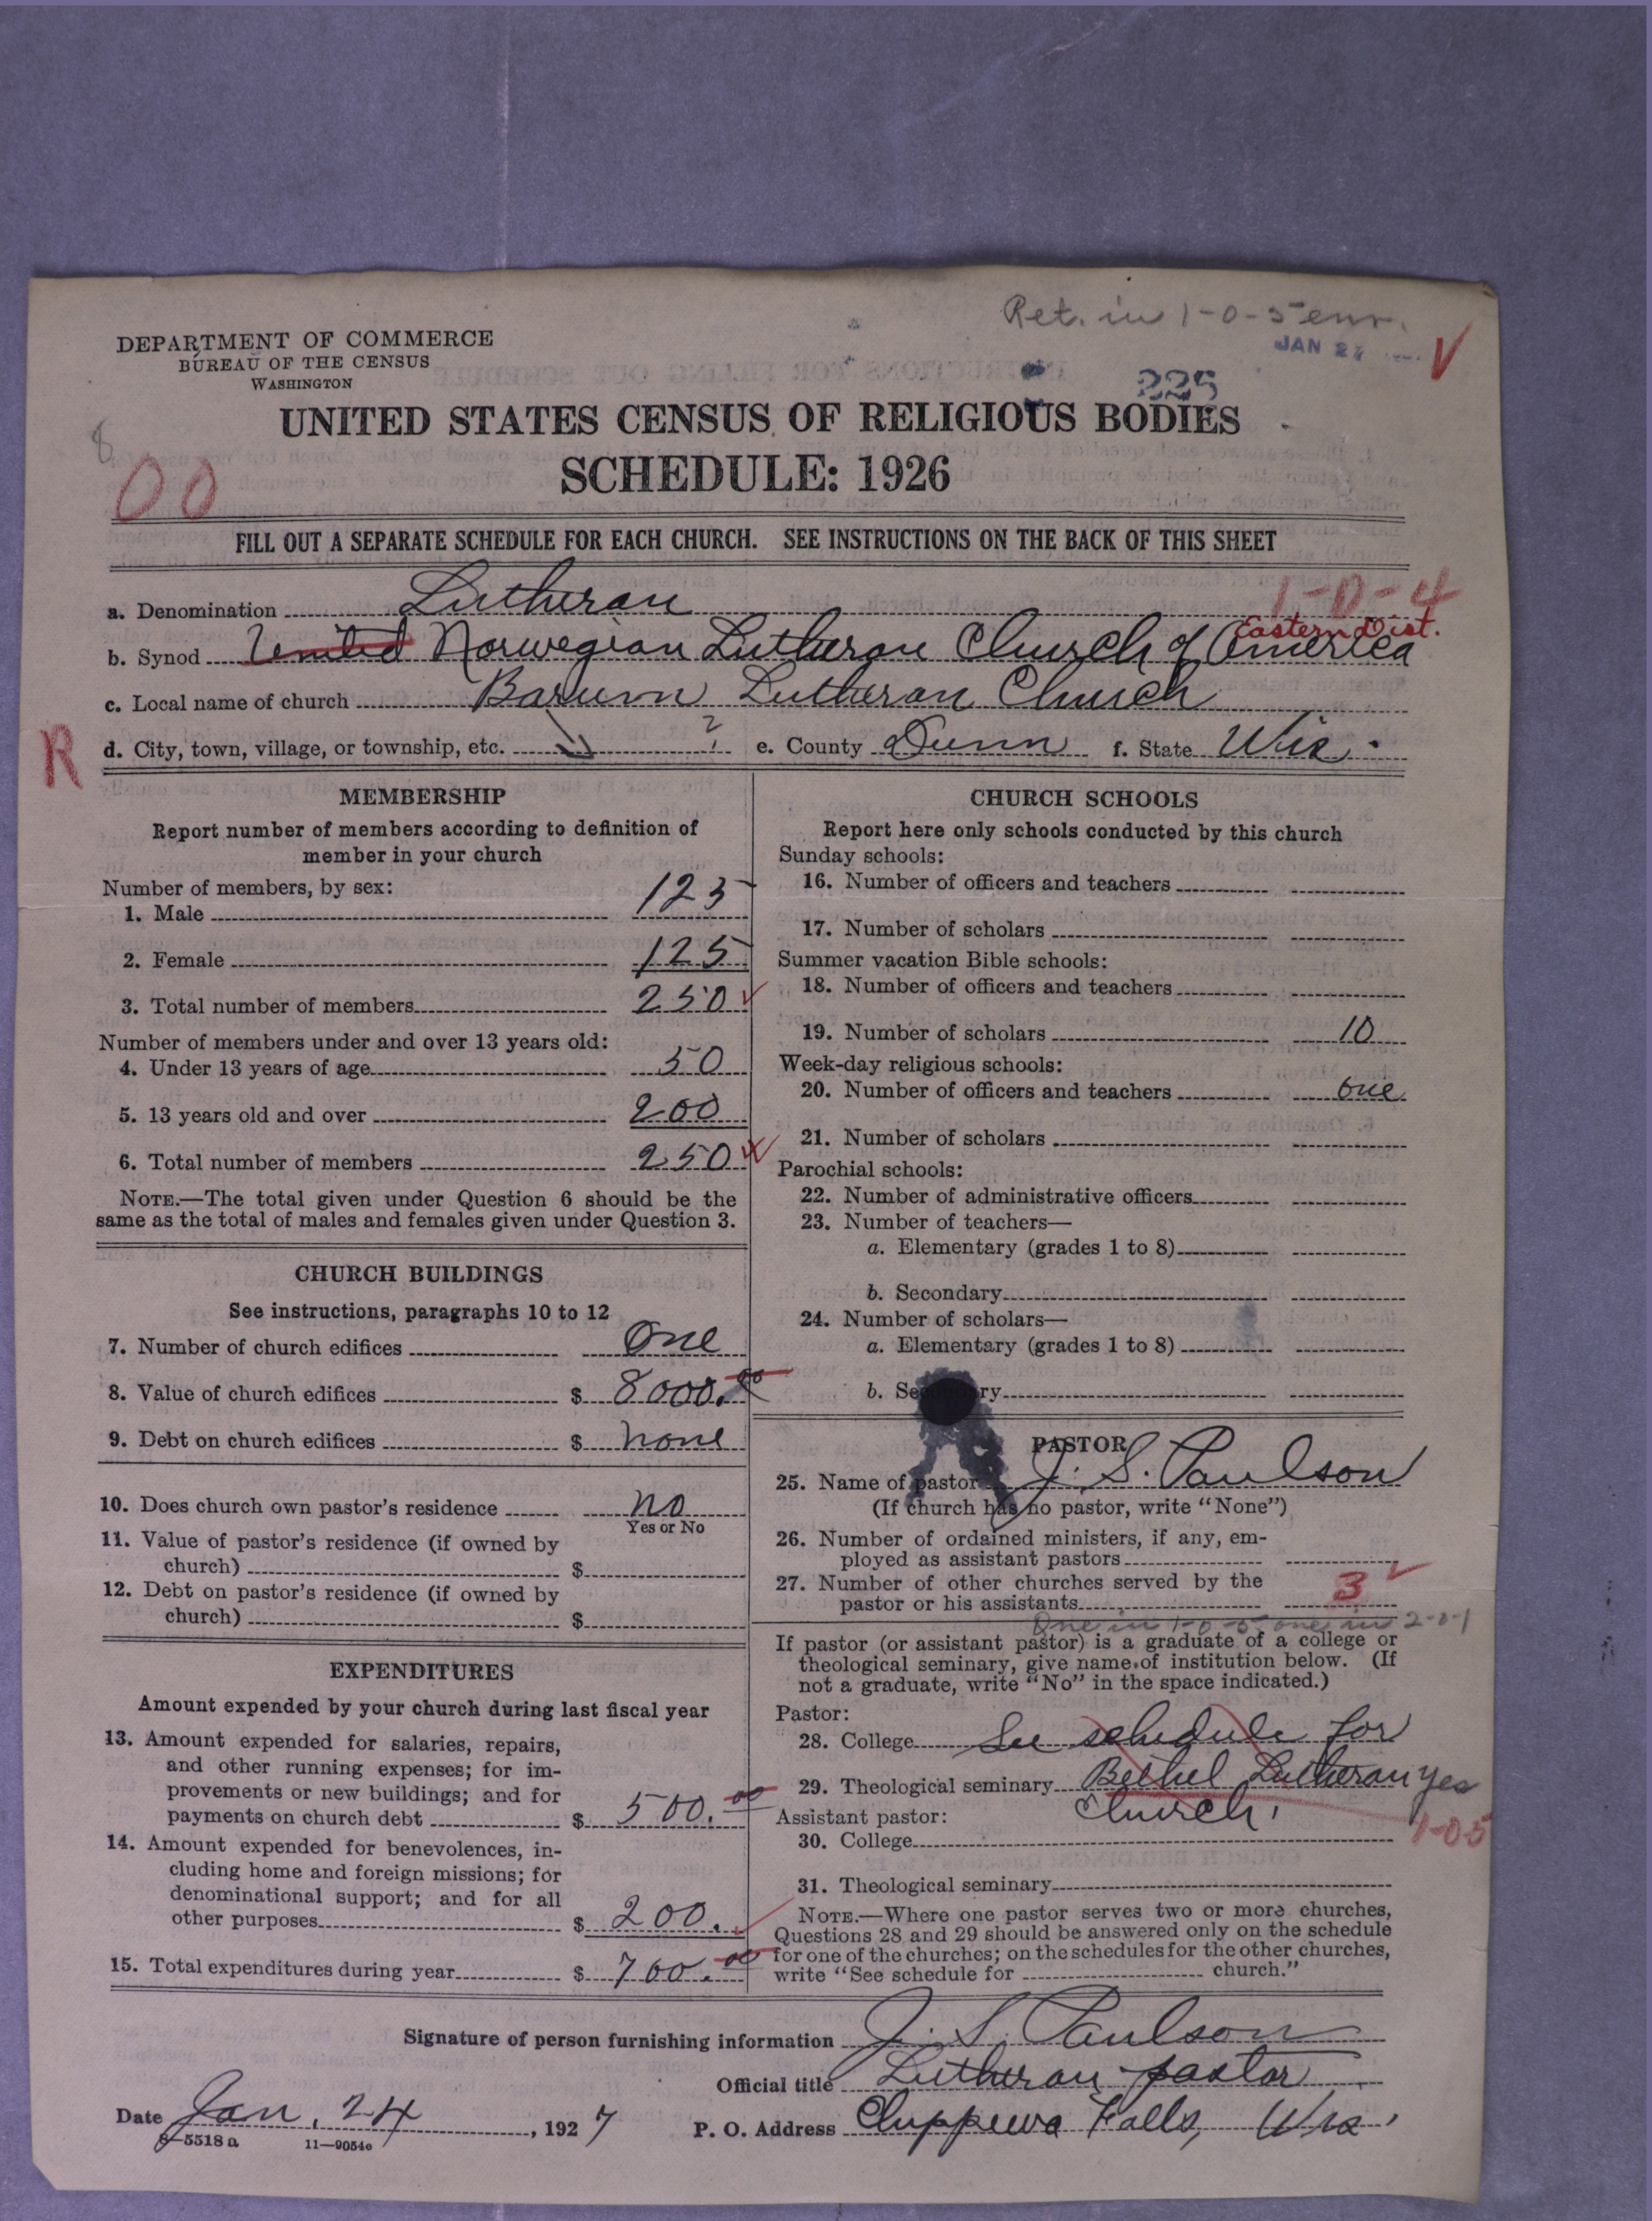 Ret. in 1-0-5 enr.
JAN 27
V
DEPARTMENT OF COMMERCE
BUREAU OF THE CENSUS
WASHINGTON
225
UNITED STATES CENSUS OF RELIGIOUS BODIES
8
00
SCHEDULE: 1926
FILL OUT A SEPARATE SCHEDULE FOR EACH CHURCH. SEE INSTRUCTIONS ON THE BACK OF THIS SHEET
1-0-4
a. Denomination Lutheran
Eastern Dist.
b. Synod United Norwegian Lutheran Church of America
c. Local name of church Barum Lutheran Church
R
d. City, town, village, or township, etc. ? e. County Dunn f. State Wis.
MEMBERSHIP
Report number of members according to definition of
member in your church
Number of members, by sex:
1. Male 125
2. Female 125
3. Total number of members 250
Number of members under and over 13 years old:
4. Under 13 years of age 50
5. 13 years old and over 200
6. Total number of members 250
NOTE.—The total given under Question 6 should be the
same as the total of males and females given under Question 3.
CHURCH BUILDINGS
See instructions, paragraphs 10 to 12
7. Number of church edifices One
8. Value of church edifices $ 8000.00
9. Debt on church edifices $ none
10. Does church own pastor's residence no
Yes or No
11. Value of pastor's residence (if owned by
church) $
12. Debt on pastor's residence (if owned by
church) $
EXPENDITURES
Amount expended by your church during last fiscal year
13. Amount expended for salaries, repairs,
and other running expenses; for im-
provements or new buildings; and for
payments on church debt $ 500.00
14. Amount expended for benevolences, in-
cluding home and foreign missions; for
denominational support; and for all
other purposes $ 200.
15. Total expenditures during year $ 700.00
CHURCH SCHOOLS
Report here only schools conducted by this church
Sunday schools:
16. Number of officers and teachers
17. Number of scholars
Summer vacation Bible schools:
18. Number of officers and teachers
19. Number of scholars 10
Week-day religious schools:
20. Number of officers and teachers one
21. Number of scholars
Parochial schools:
22. Number of administrative officers
23. Number of teachers—
a. Elementary (grades 1 to 8)
b. Secondary
24. Number of scholars—
a. Elementary (grades 1 to 8)
b. Secondary
PASTOR
25. Name of pastor J. S. Paulson
(If church has no pastor, write "None")
26. Number of ordained ministers, if any, em-
ployed as assistant pastors
27. Number of other churches served by the
pastor or his assistants 3
One in 1-0-5 one in 2-0-1
If pastor (or assistant pastor) is a graduate of a college or
theological seminary, give name of institution below. (If
not a graduate, write "No" in the space indicated.)
Pastor:
28. College See schedule for
29. Theological seminary Bethel Lutheran yes
Church.
Assistant pastor:
1-0-5
30. College
31. Theological seminary
NOTE.—Where one pastor serves two or more churches,
Questions 28 and 29 should be answered only on the schedule
for one of the churches; on the schedules for the other churches,
write "See schedule for church."
Signature of person furnishing information J. S. Paulson
Official title Lutheran pastor
Date Jan. 24, 1927 P. O. Address Chippewa Falls, Wis.
8—5518a 11—9054e